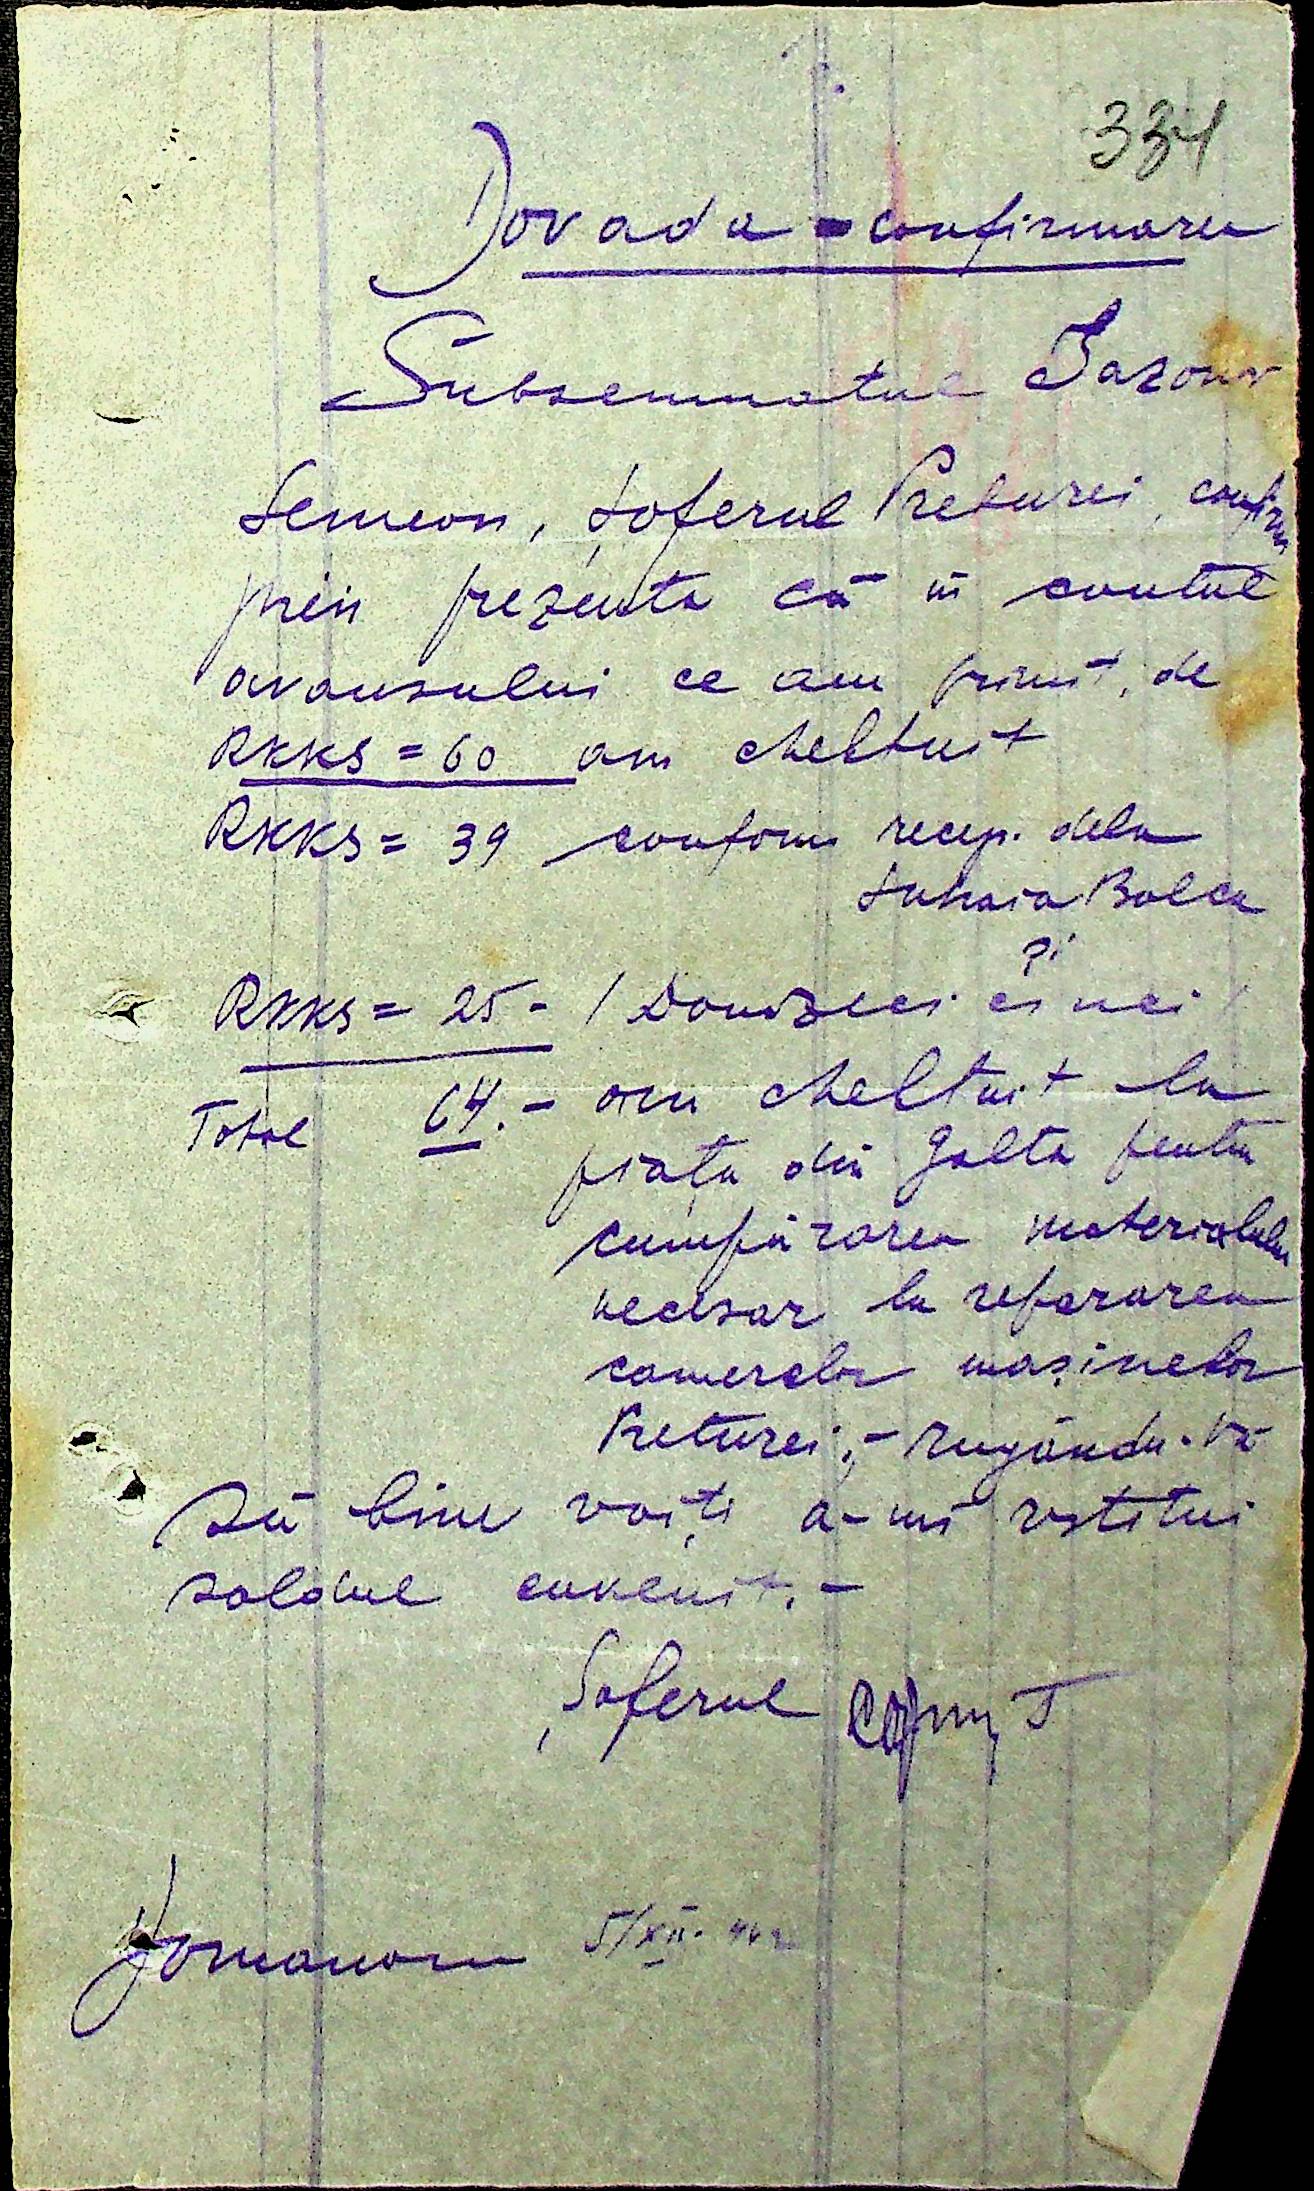 334
Dovada - confirmarea
Subsemnatul
Semeon, șoferul Preturei, confirm
prin prezenta că în contul
avansului ce am primit, de
RKKS = 60 am cheltuit
RKKS = 39 conform recep. dela
Suhaia Balca
RKKS = 25 - / Douăzeci și cinci /
Total 64.- am cheltuit la
piața din Golta pentru
cumpărarea materialului
necesar la repararea
camerelor mașinelor
Preturei, - rugându-vă
să bine voiți a-mi restitui
soldul cuvenit. -
Șoferul
Domanova 5/XII.